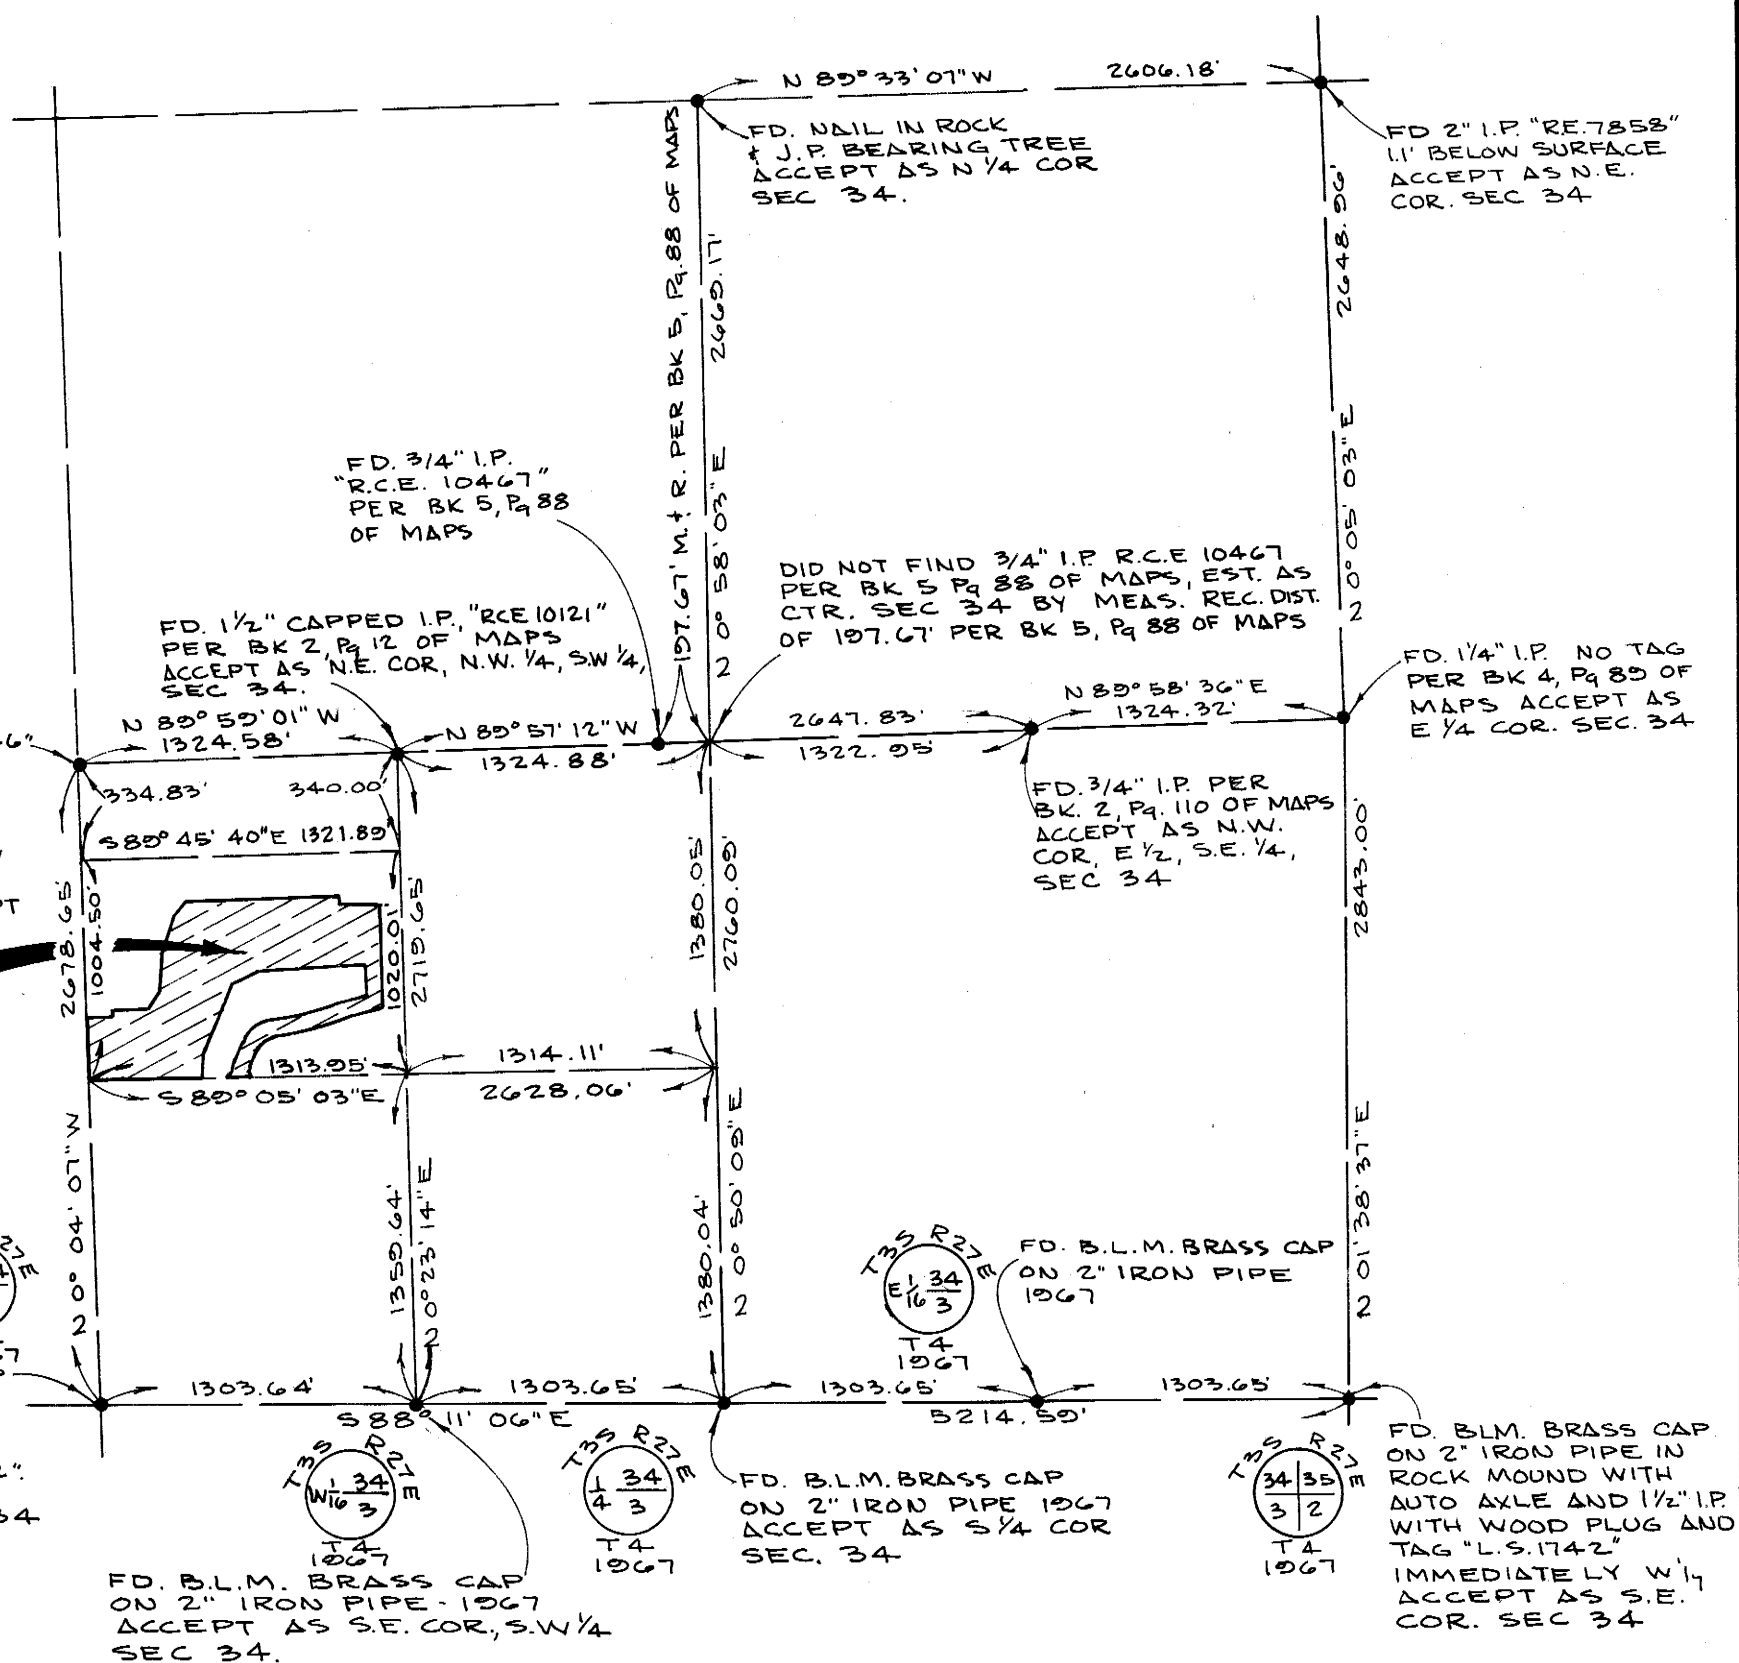 N 89° 33' 07" W 2606.18'
FD. NAIL IN ROCK
& J.P. BEARING TREE
ACCEPT AS N 1/4 COR
SEC 34.
FD 2" I.P. "R.E. 7858"
1.1' BELOW SURFACE
ACCEPT AS N.E.
COR. SEC 34
197.67' M. & R. PER BK 5, Pg. 88 OF MAPS
N 0° 58' 03" E 2669.17'
N 0° 05' 03" E 2648.96'
FD. 3/4" I.P.
"R.C.E. 10467"
PER BK 5, Pg 88
OF MAPS
DID NOT FIND 3/4" I.P. R.C.E 10467
PER BK 5 Pg 88 OF MAPS, EST. AS
CTR. SEC 34 BY MEAS. REC. DIST.
OF 197.67' PER BK 5, Pg 88 OF MAPS
FD. 1 1/2" CAPPED I.P., "RCE 10121"
PER BK 2, Pg 12 OF MAPS
ACCEPT AS N.E. COR, N.W. 1/4, S.W 1/4,
SEC 34.
FD. 1 1/4" I.P. NO TAG
PER BK 4, Pg 89 OF
MAPS ACCEPT AS
E 1/4 COR. SEC. 34
6"
N 89° 59' 01" W
1324.58'
N 89° 57' 12" W
1324.88'
2647.83'
1322.95'
N 89° 58' 36" E
1324.32'
334.83'
340.00'
S 89° 45' 40" E 1321.89'
FD. 3/4" I.P. PER
BK. 2, Pg. 110 OF MAPS
ACCEPT AS N.W.
COR, E 1/2, S.E. 1/4,
SEC 34
2678.65'
1004.50'
1020.01'
2719.65'
1380.05'
2760.09'
2843.00'
1313.95'
S 89° 05' 03" E
1314.11'
2628.06'
N 0° 04' 07" W
1359.64'
N 0° 23' 14" E
1380.04'
N 0° 50' 09" E
N 01° 38' 37" E
T3S R27E
E 1/16 34
3
T4
1967
FD. B.L.M. BRASS CAP
ON 2" IRON PIPE
1967
1303.64'
1303.65'
1303.65'
1303.65'
S 88° 11' 06" E
5214.59'
T3S R27E
W 1/16 34
3
T4
1967
T3S R27E
1/4 34
3
T4
1967
FD. B.L.M. BRASS CAP
ON 2" IRON PIPE 1967
ACCEPT AS S 1/4 COR
SEC. 34
T3S R27E
34 35
3 2
T4
1967
FD. BLM. BRASS CAP
ON 2" IRON PIPE IN
ROCK MOUND WITH
AUTO AXLE AND 1 1/2" I.P.
WITH WOOD PLUG AND
TAG "L.S. 1742"
IMMEDIATELY W'ly
ACCEPT AS S.E.
COR. SEC 34
FD. B.L.M. BRASS CAP
ON 2" IRON PIPE - 1967
ACCEPT AS S.E. COR., S.W 1/4
SEC 34.